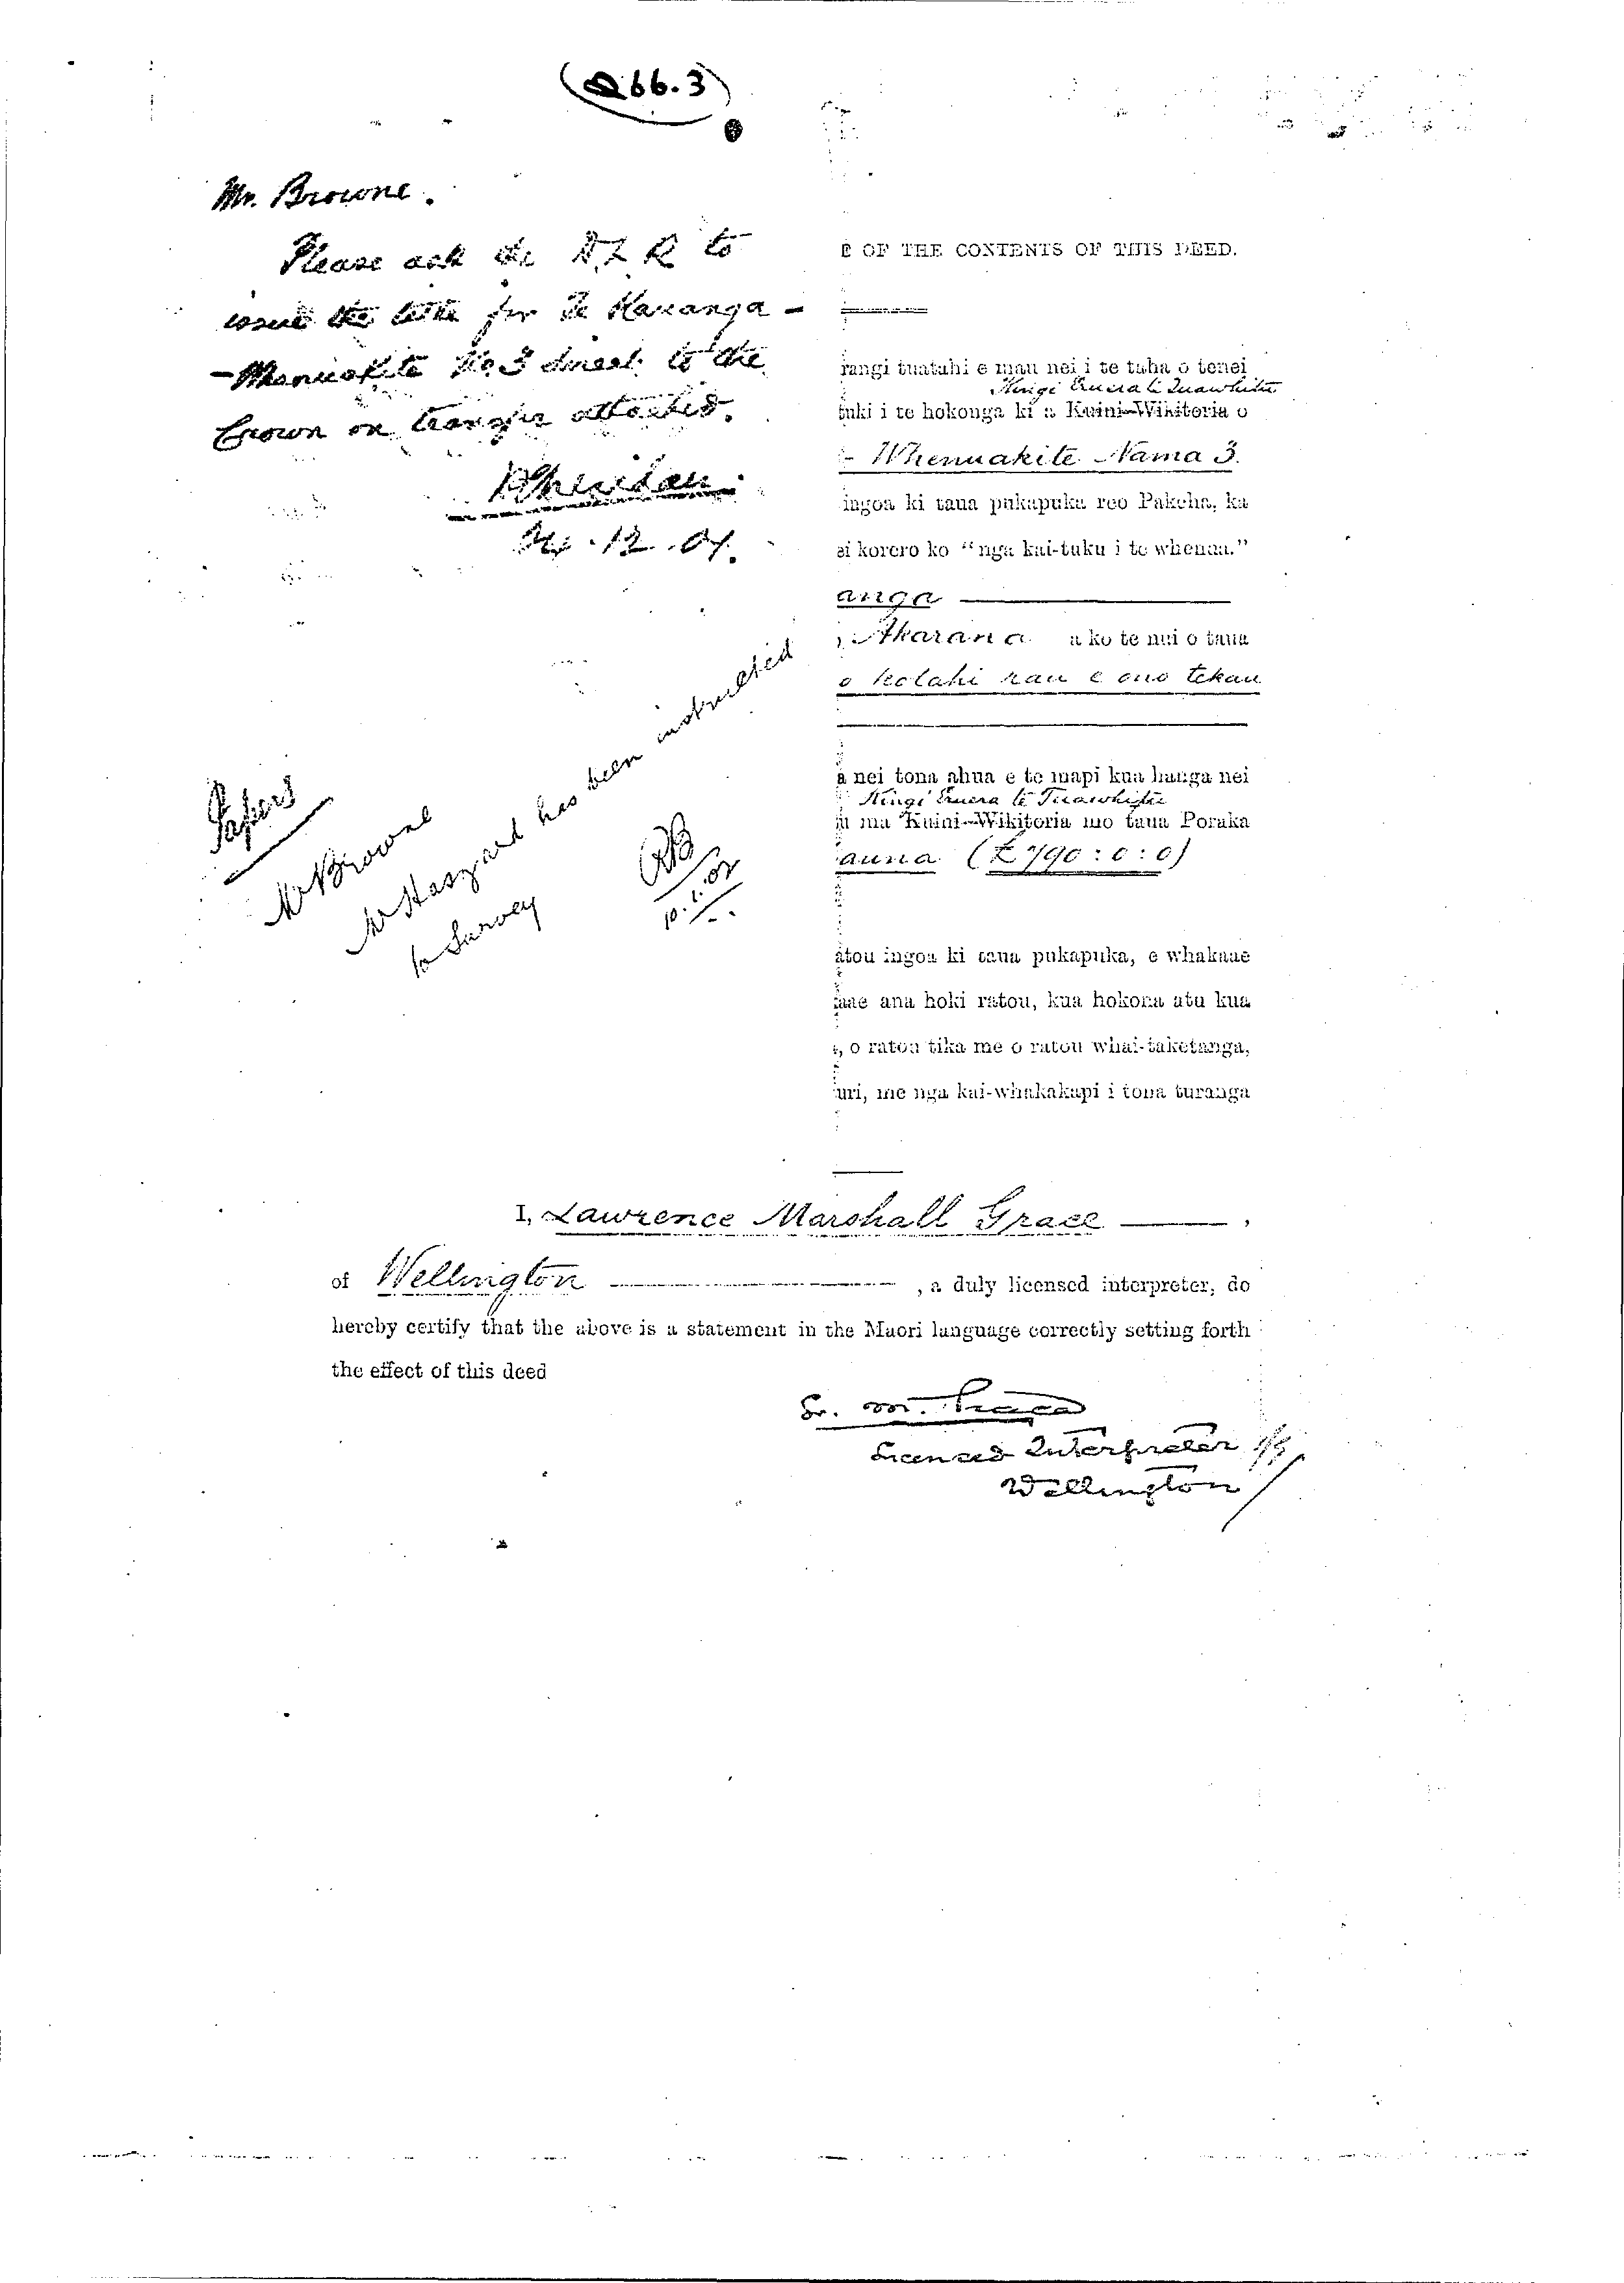 266.3
Mr. Browne.
Please ask the D L R to
issue the title for Te Karanga -
- Whenuakite No 3 direct to the
Crown on transfer attached.
12. 07.
Papers
Mr Browne
Mr Haszard has been instructed
to Survey
E OF THE CONTENTS OF THIS DEED.
rangi tuatahi e mau nei i te taha o tenei
Kingi Eruera te Tuawhitu
tuki i te hokonga ki a Kuini Wikitoria o
- Whenuakite Nama 3.
ingoa ki taua pukapuka reo Pakeha, ka
ai korero ko "nga kai-tuku i te whenua."
anga
, Akarana a ko te nui o taua
o kotahi rau e ono tekau
a nei tona ahua e te mapi kua hanga nei
Kingi Eruera te Tuawhitu
ma Kuini Wikitoria mo taua Poraka
auna (£790:0:0)
atou ingoa ki taua pukapuka, e whakaae
ana hoki ratou, kua hokona atu kua
, o ratou tika me o ratou whai-taketanga,
uri, me nga kai-whakakapi i tona turanga
I, Lawrence Marshall Grace ,
of Wellington , a duly licensed interpreter, do
hereby certify that the above is a statement in the Maori language correctly setting forth
the effect of this deed
L. M. Grace
Licensed Interpreter
Wellington